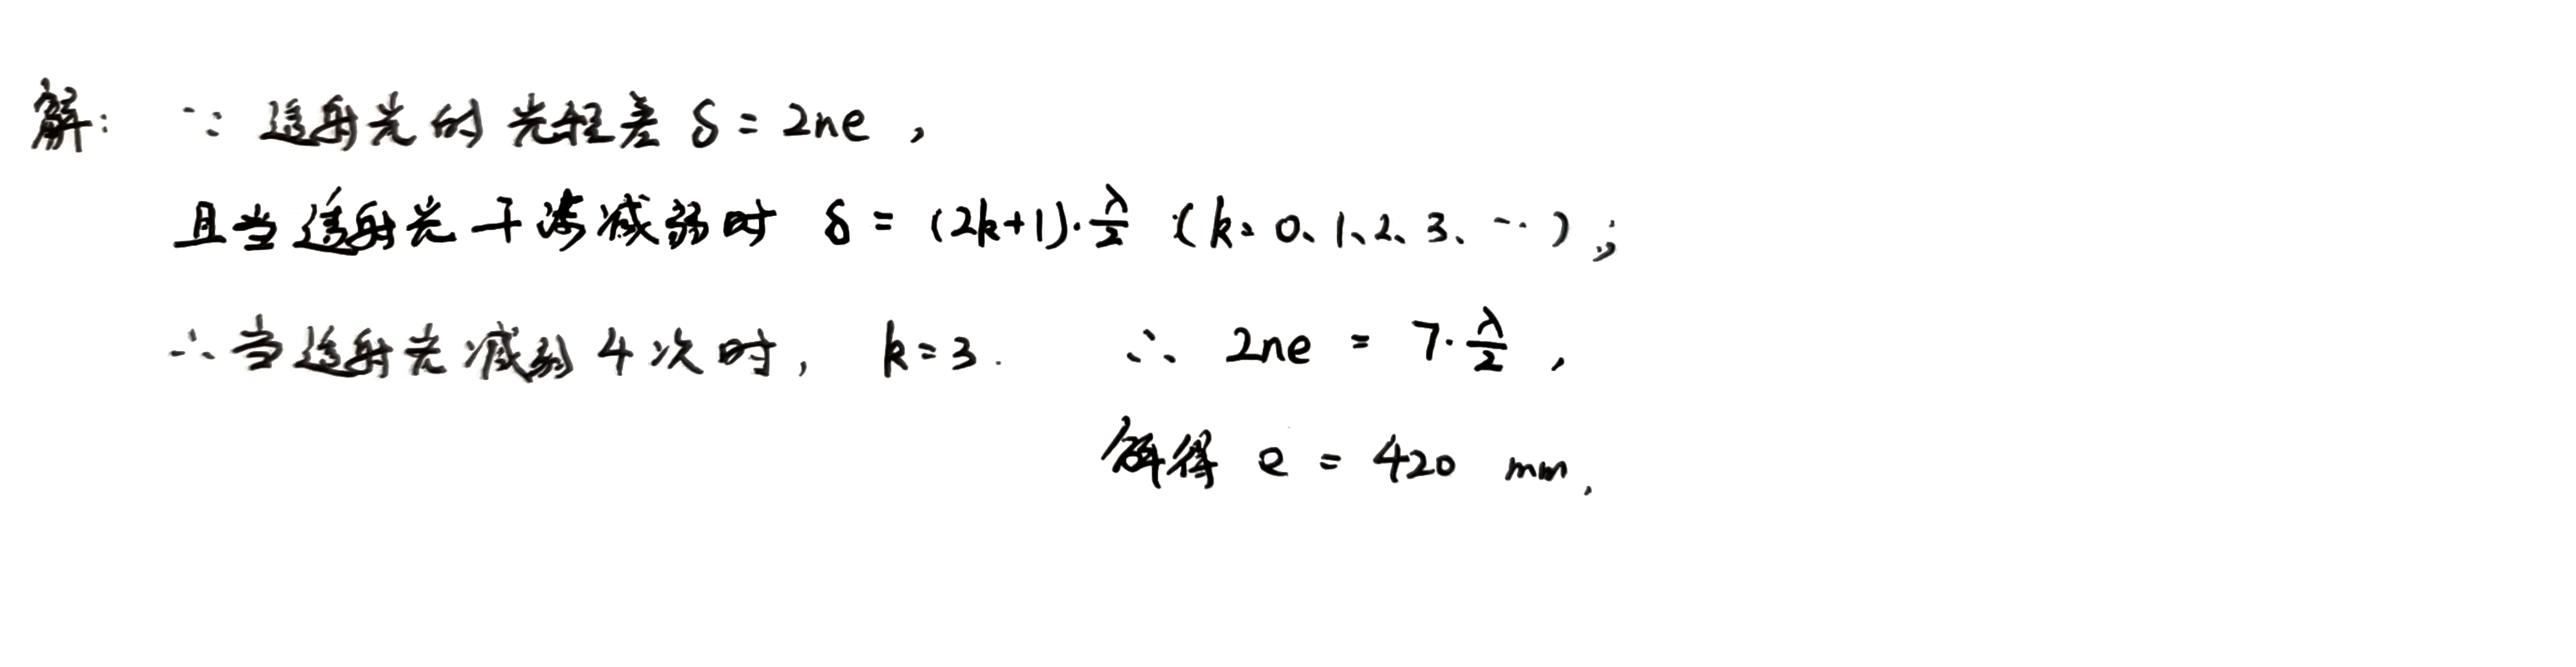 解： ∵ 透射光的光程差 δ = 2ne ，
且当透射光干涉减弱时 δ = (2k+1)·λ/2 （k = 0、1、2、3、…）；
∴ 当透射光减弱4次时， k = 3. ∴ 2ne = 7·λ/2 ，
解得 e = 420 mm.